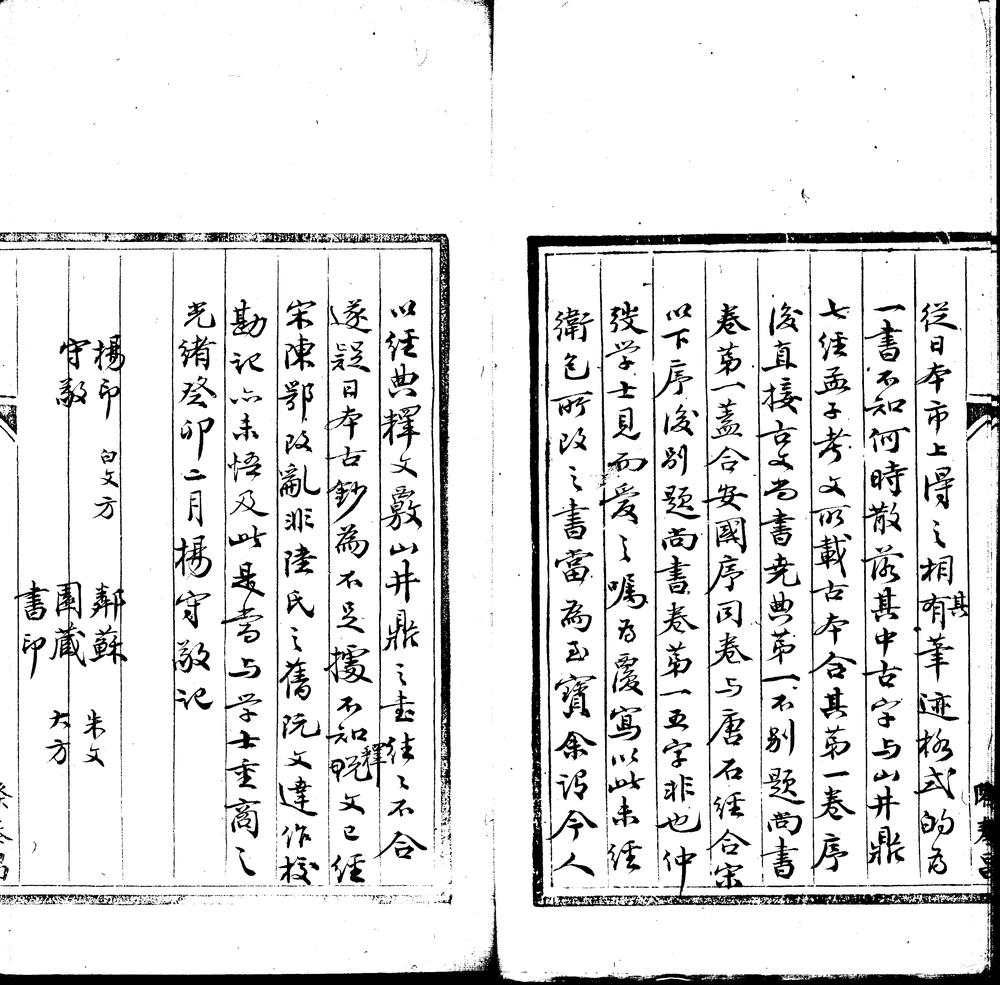 從日本市上得之相其有筆迹格式的為
一書不知何時散落其中古字与山井鼎
七經孟子考文所載古本合其第一卷序
後直接古文尚書堯典第一不別題尚書
卷第一蓋合安國序同卷与唐石經合宋
以下序後別題尚書卷第一五字非也仲
弢学士見而愛之嘱為覆寫以此未經
衛包所改之書當為至寶余謂今人
以經典釋文覈山井鼎之書往之不合
遂疑日本古鈔為不足據不知釋文已經
宋陳鄂改亂非陸氏之舊阮文達作校
勘記亦未悟及此是當与学士重商之
光緒癸卯二月楊守敬記
楊印
守敬
白文方
鄰蘇
園蔵
書印
朱文
大方